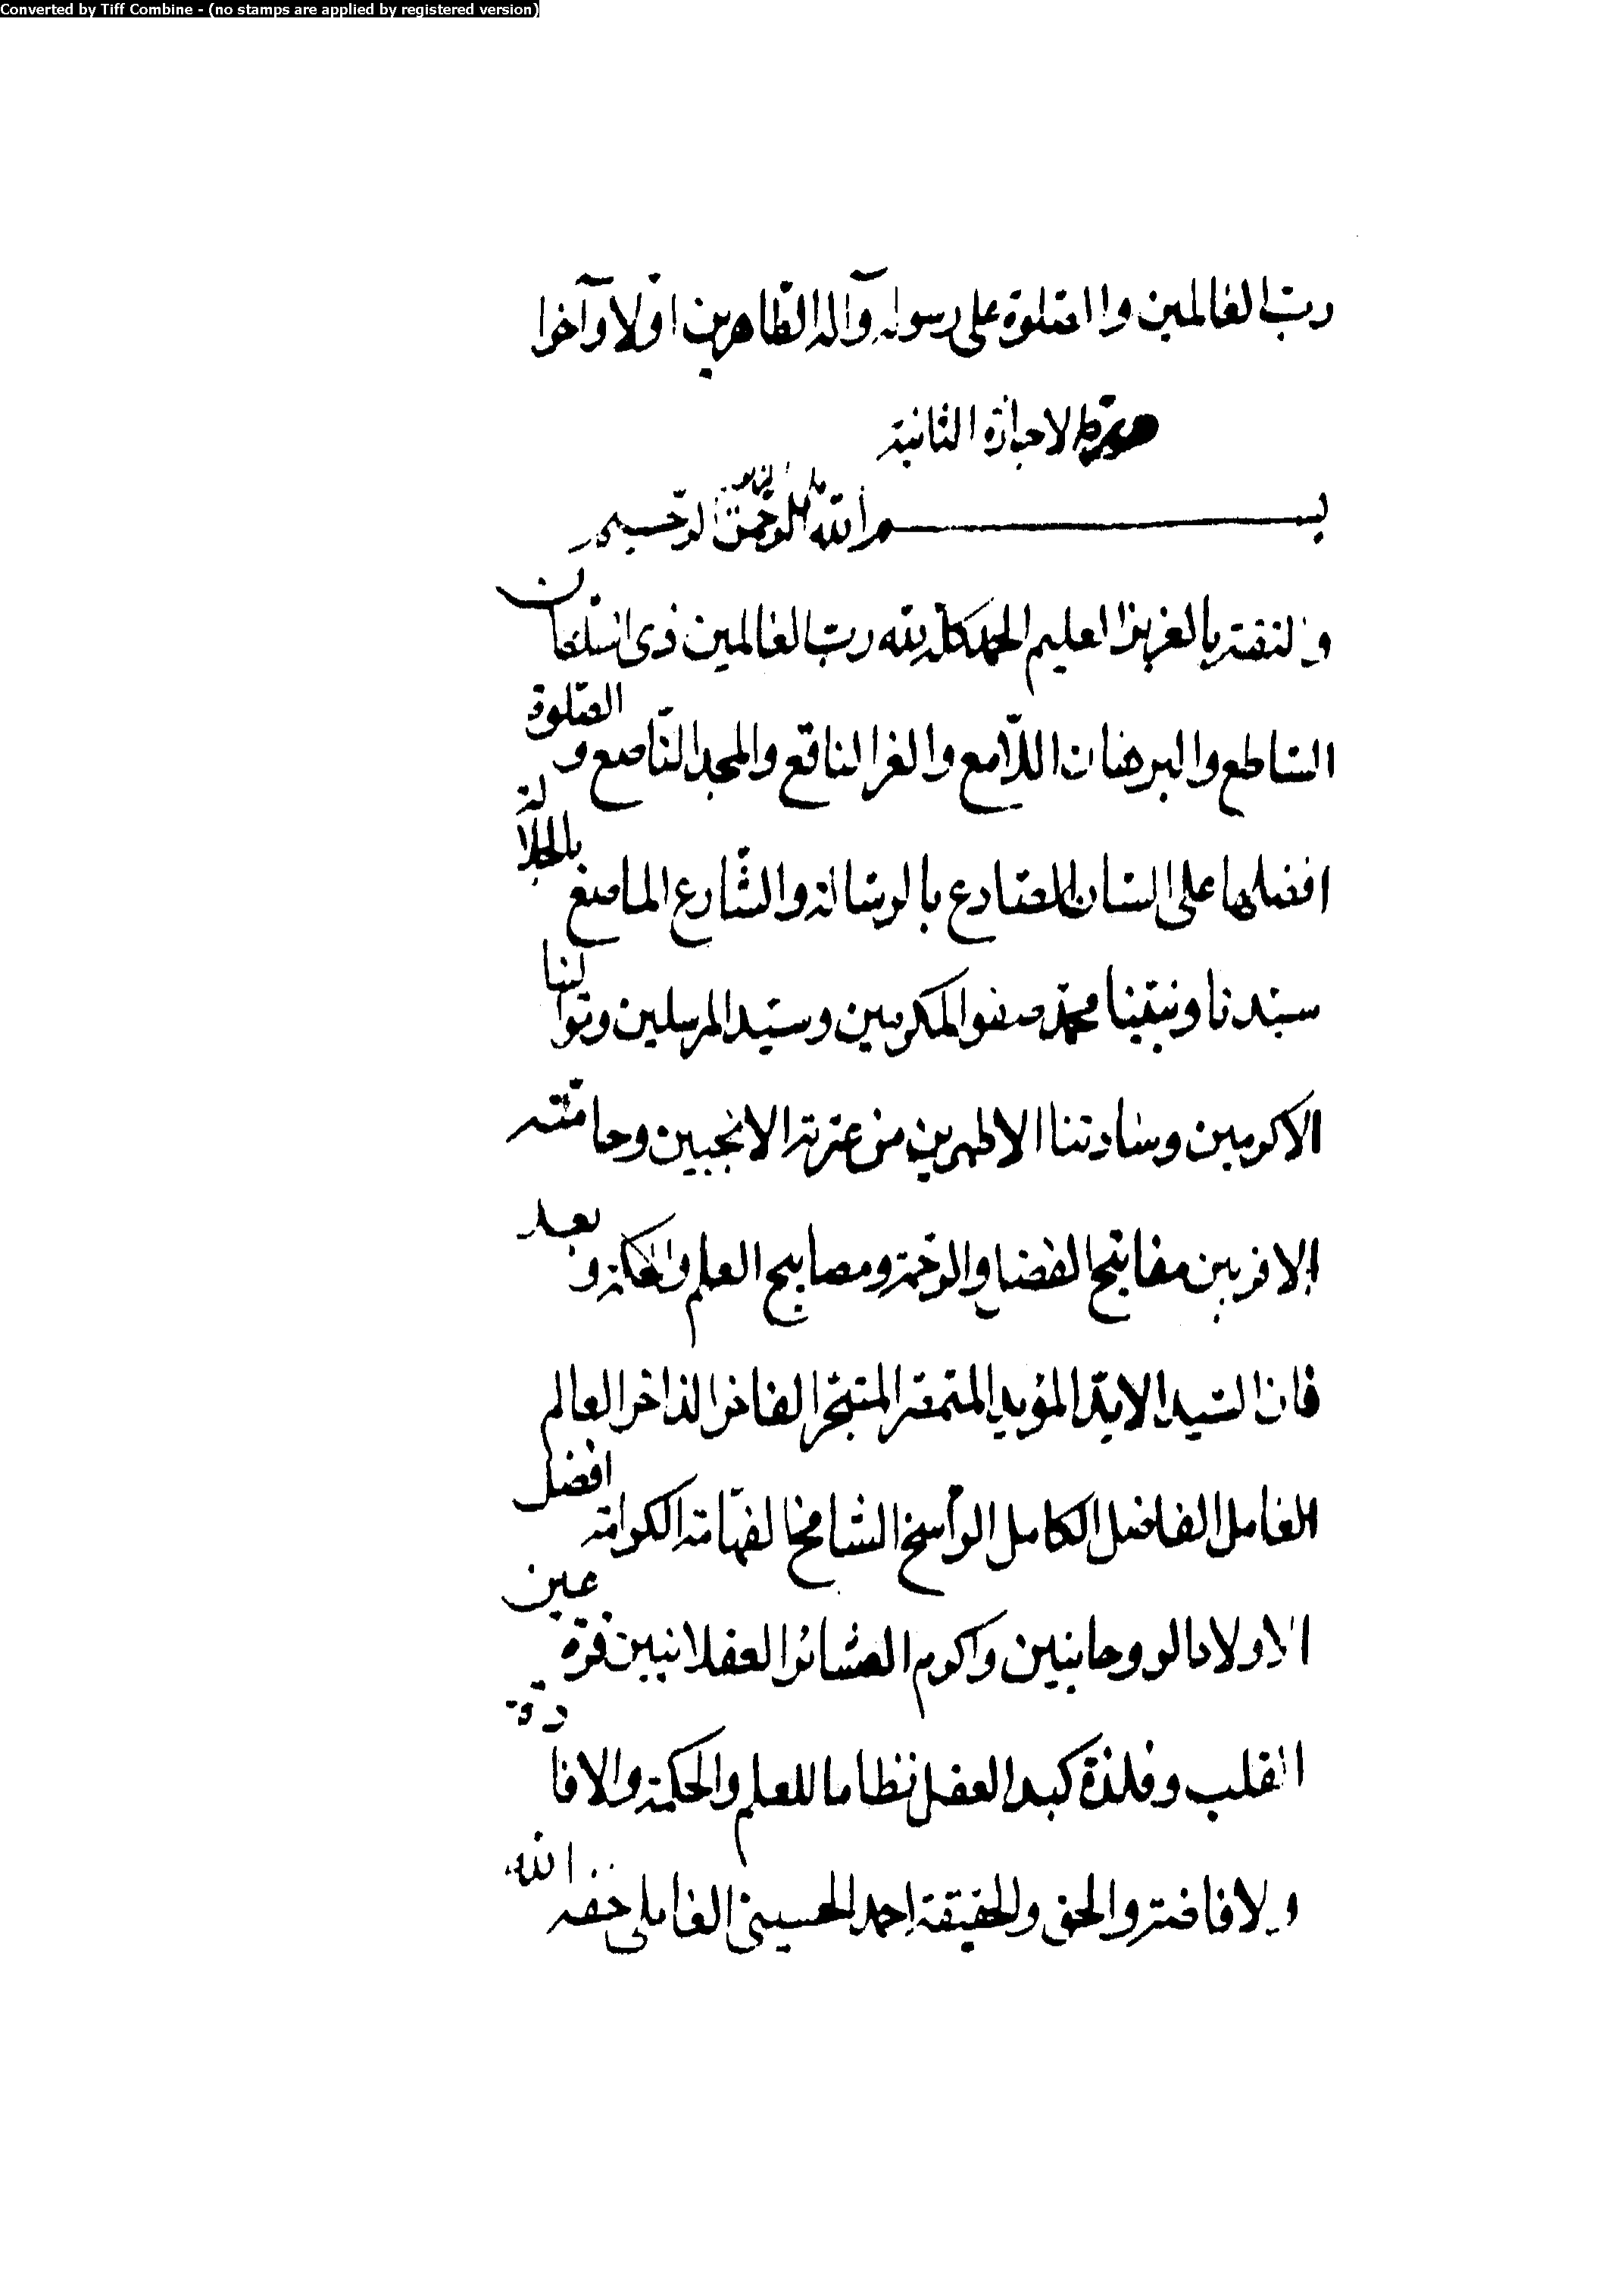 Converted by Tiff Combine - (no stamps are applied by registered version)
رب العالمين والصلوة على رسوله وآله الطاهرين اولا وآخرا
صورة الاجازة الثانية
بسم الله الرحمن الرحيم
والثقة بالعزيز العليم الحمد كله لله رب العالمين ذى السلطان
الساطع والبرهان اللامع والعز الناقع والمجد الناصع والصلوة
افضلها على السان الصادع بالرسالة والشارع الماصع بالجلالة
سيدنا ونبينا محمد صفو المكرمين وسيد المرسلين وموالينا
الاكرمين وسادتنا الاطهرين من عترته الانجبين وحامته
الاقربين مفاتيح الفضل والرحمة ومصابيح العلم والحكمة وبعد
فان السيد الايد المؤيد المتمهر المتبحر الفاخر الذاخر العالم
العامل الفاضل الكامل الراسخ الشامخ الفهامة الكرامة افضل
الاولاد الروحانيين واكرم العشائر العقلانيين قرة عين
القلب وفلذة كبد العقل نظاما للعلم والحكمة والافادة
والافاضة والحق والحقيقة احمد الحسينى العاملى حفه الله